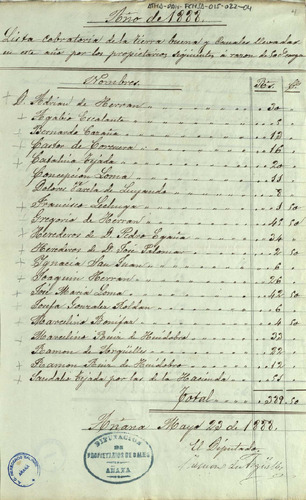 Año de 1888.
Lista cobratoria de la tierra buena y Canales llevadas
en este año por los propietarios siguientes á razon de
Nombres. Rs.
D. Adrian de Herran 30
Agabio Escalante 8
Bernardo Caraña 12
Castor de Corcuera 16
Catalina Ojeda 20
Concepcion Loma 11
Dolores Varela de Luyando 8
Francisco Lechuga 1 50
Gregorio de Herran 42 50
Herederos de D. Pedro Egaña 34
Herederos de D. José Palomar 2 50
Ygnacia San Juan 6
Joaquin Herran 26
José Maria Loma 42 50
Josefa Gonzalez Roldan 6
Marcelino Bonifaz 4 50
Marcelino Ruiz de Huidobro 33
Ramon de Angulles 22
Ramon Ruiz de Huidobro 12
Saudalio Ojeda por las de la Hacienda 51
Total 389 50
Añana Mayo 22 de 1888.
El Diputado
DIPUTACION
DE
PROPIETARIOS DE SALES
AÑANA